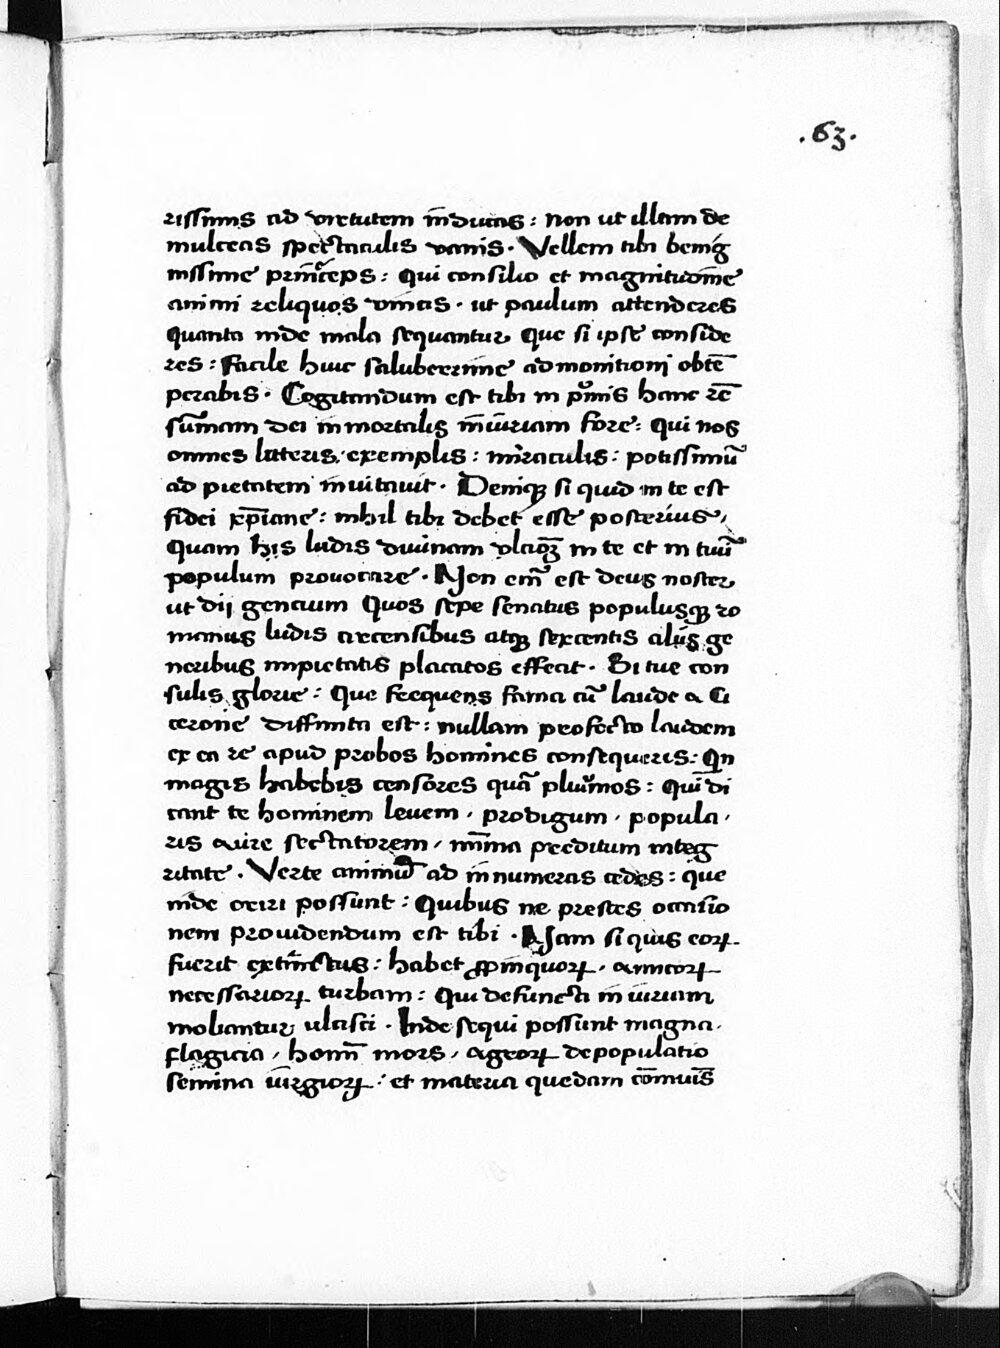 .63.
rissimis ad virtutem īnducas : non ut illam de
mulceas spectaculis vanis . Vellem tibi benig
nissime prīnceps : Qui consilio et magnitudīne
animi reliquos vincis . ut paulum attenderes
Quanta inde mala sequantur Que si ipse conside
res : Facile huic saluberrime admonitioni obtē
perabis . Cogitandum est tibi in pͥmis hanc rē
sūmam dei inmortalis īniuriam fore : Qui nos
omnes litteris . exemplis : miraculis : potissimū
ad pietatem inuitauit . Deniqꝫ si quid in te est
fidei xp̄iane : nihil tibi debet esse posterius ,
Quam his ludis diuinam vlaōꝫ in te et in tuū
populum prouocare . Non em̄ est deus noster
ut dij gencium Quos sepe senatus populusqꝫ ro
manus ludis circensibus atqꝫ sexcentis alijs ge
neribus impietatis placatos effecit . Si tue con
sulis glorie : Que frequens fama cū laude a Ci
cerone diffinita est : nullam profecto laudem
ex ea re apud probos homines consequeris : Qn
magis habebis censores quā plurimos : Qui di
cant te hominem leuem , prodigum , popula ,
ris aure sectatorem , mīma preditum integ
ritate . Verte animum ad innumeras cedes : que
inde oriri possunt : Quibus ne prestes occasio
nem prouidendum est tibi . Nam si quis eoꝝ
fuerit extīnctus : habet ꝓpinquoꝝ , amicoꝝ
necessarioꝝ turbam : Qui defuncti iniuriam
moliantur ulcisci . Inde sequi possunt magna ,
flagicia , homī mors , agroꝝ depopulatio
semina iurgioꝝ : et materia quedam cōmuīs